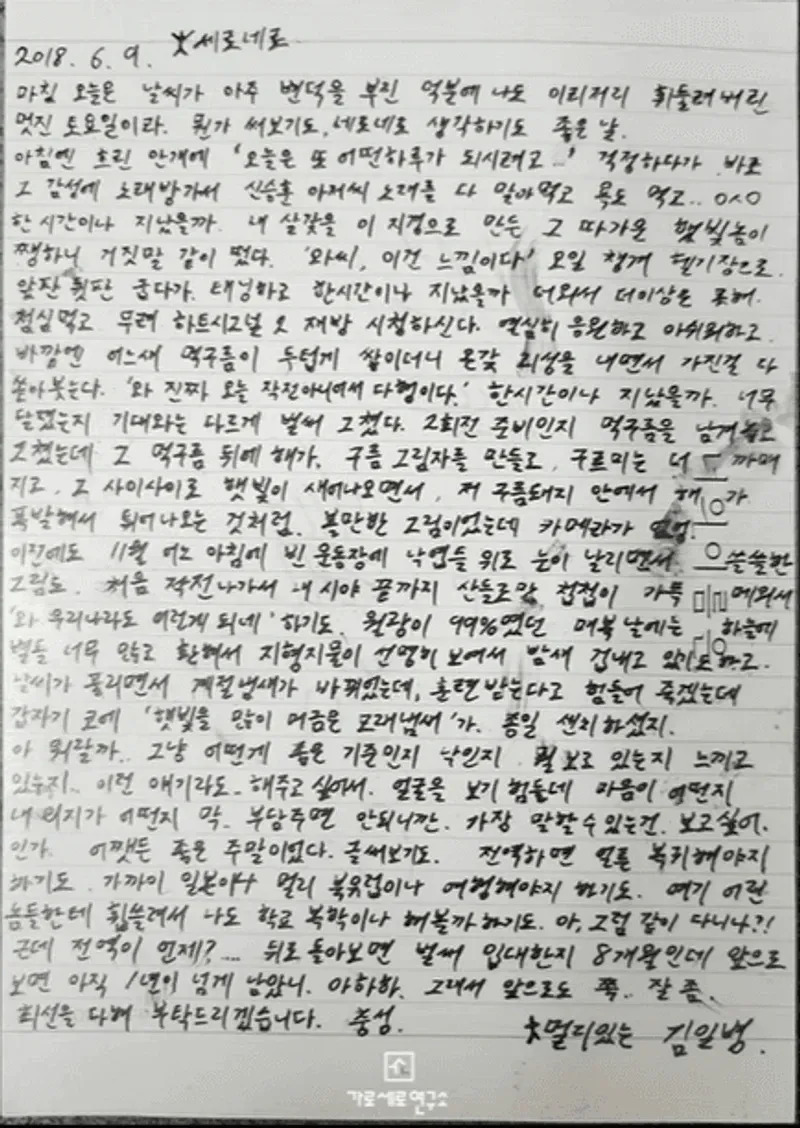 2018. 6. 9. 세로네로
마침 오늘은 날씨가 아주 변덕을 부린 덕분에 나도 이리저리 휘둘려버린
멋진 토요일이라. 뭔가 써보기도, 네로네로 생각하기도 좋은 날.
아침엔 흐린 안개에 '오늘은 또 어떤하루가 되시려고...' 걱정하다가 바로
그 감성에 노래방가서 신승훈 아저씨 노래를 다 말아먹고 욕도 먹고..
한시간이나 지났을까. 내 살갗을 이 지경으로 만든 그 따가운 햇빛놈이
쨍하니 거짓말 같이 떴다. '와씨, 이건 느낌이다' 오일 챙겨 헬기장으로.
앞판 뒷판 굽다가. 태닝하고 한시간이나 지났을까 더워서 더이상은 못해.
점심먹고 무려 하트시그널 2 재방 시청하신다. 열심히 응원하고 아쉬워하고.
바깥엔 어느새 먹구름이 두텁게 쌓이더니 온갖 괴성을 내면서 가진걸 다
쏟아붓는다. '와 진짜 오늘 작전아니여서 다행이다.' 한시간이나 지났을까. 너무
달랬는지 기대와는 다르게 벌써 그쳤다. 2회전 준비인지 먹구름을 남겨놓고
그쳤는데 그 먹구름 뒤에 해가. 구름 그림자를 만들고, 구르미는 더 까매
지고. 그 사이사이로 햇빛이 새어나오면서, 저 구름돼지 안에서 해가
폭발해서 튀어나오는 것처럼. 볼만한 그림이었는데 카메라가
이전에도 11월 어느 아침에 빈 운동장에 낙엽들 위로 눈이 날리면서 쓸쓸한
그림도. 처음 작전나가서 내 시야 끝까지 산들로만 첩첩이 가득 메워서
'와 우리나라도 이렇게 되네' 하기도. 월광이 99%였던 매복 날에는 하늘에
별들 너무 많고 환해서 지형지물이 선명히 보여서 밤새 겁내고 있기도하고.
날씨가 풀리면서 계절냄새가 바뀌었는데, 훈련받는다고 힘들어 죽겠는데
갑자기 코에 '햇빛을 많이 머금은 모래냄새'가. 종일 센치하셨지.
아 뭐랄까.. 그냥 어떻게 좁은 기준인지 낙인지 뭘 보고 있는지 느끼고
있는지.. 이런 얘기라도.. 해주고 싶어서. 얼굴을 보기 힘든데 마음이 어떤지
내 의지가 어떤지 막.. 부담주면 안되니깐. 가장 말할수있는건. 보고싶어.
인가. 어쨌든 좋은 주말이었다. 글써보기도. 전역하면 얼른 복귀해야지
하기도. 가까이 일본이나 멀리 북유럽이나 여행해야지 하기도. 여기 어린
놈들한테 휩쓸려서 나도 학교 복학이나 해볼까하기도. 아, 그럼 같이 다니나?!
근데 전역이 언제?.... 뒤로 돌아보면 벌써 입대한지 8개월인데 앞으로
보면 아직 1년이 넘게 남았니. 아하하. 그래서 앞으로도 쭉.. 잘 좀.
최선을 다해 부탁드리겠습니다. 충성.
멀리있는 김일병.
가로세로연구소